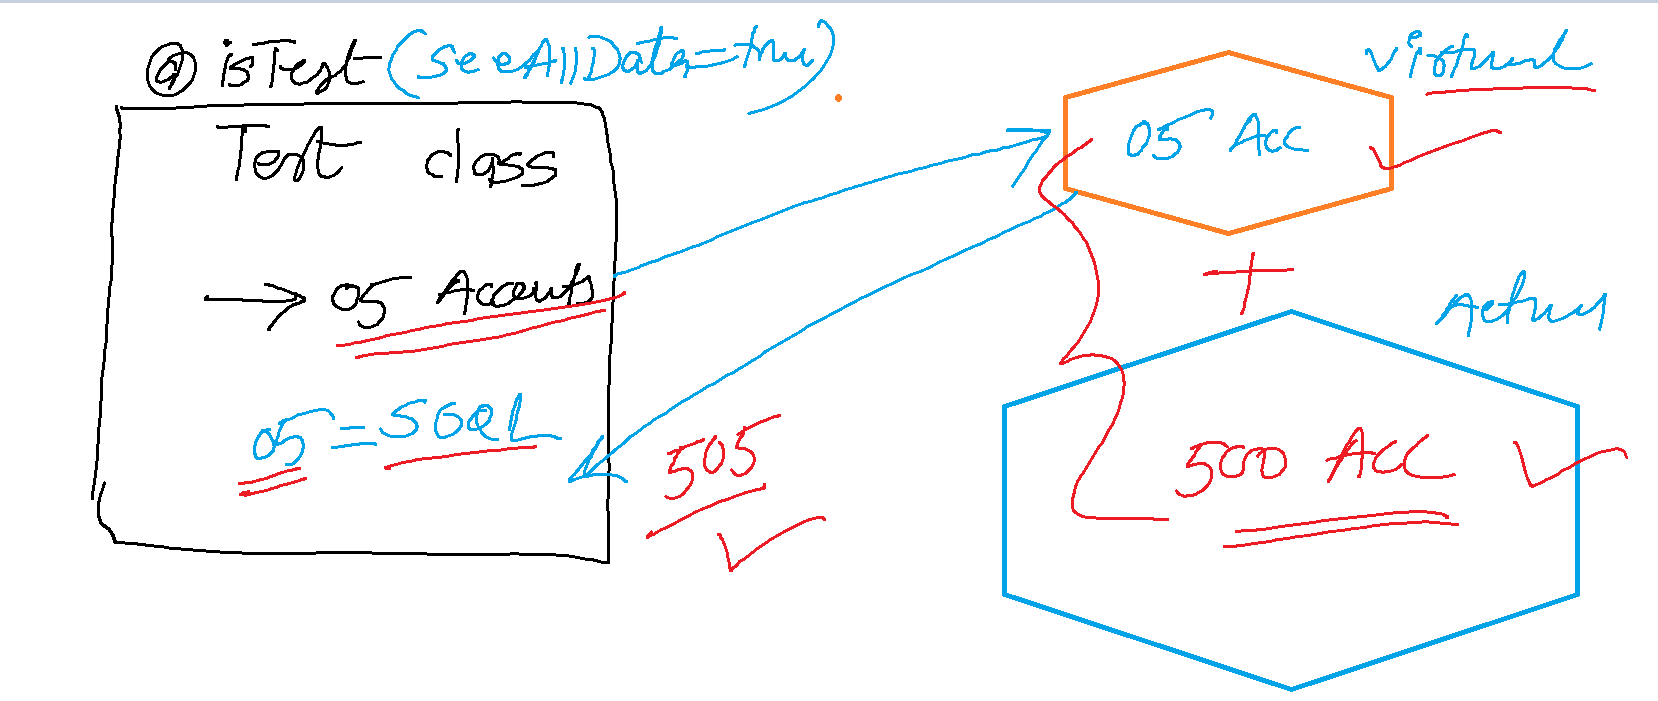 @isTest(SeeAllData=true)
Test class
→ 05 Accounts
05 = SOQL
505
Virtual
05 Acc
+
Actual
500 Acc